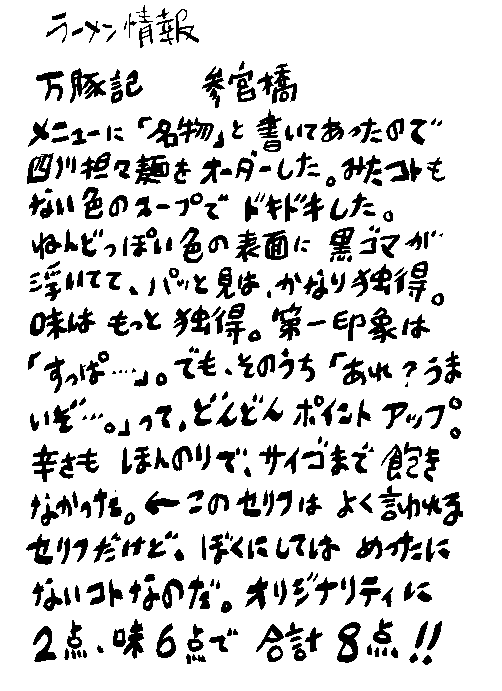 ラーメン情報
万豚記　参宮橋
メニューに「名物」と書いてあったので
四川担々麺をオーダーした。みたコトも
ない色のスープでドキドキした。
ねんどっぽい色の表面に黒ゴマが
浮いてて、パッと見は、かなり独得。
味はもっと独得。第一印象は
「すっぱ……」。でも、そのうち「あれ？うま
いぞ…。」って、どんどんポイントアップ。
辛さもほんのりで、サイゴまで飽き
なかった。←このセリフはよく言われる
セリフだけど、ぼくにしてはめったに
ないコトなのだ。オリジナリティに
2点、味6点で合計8点!!